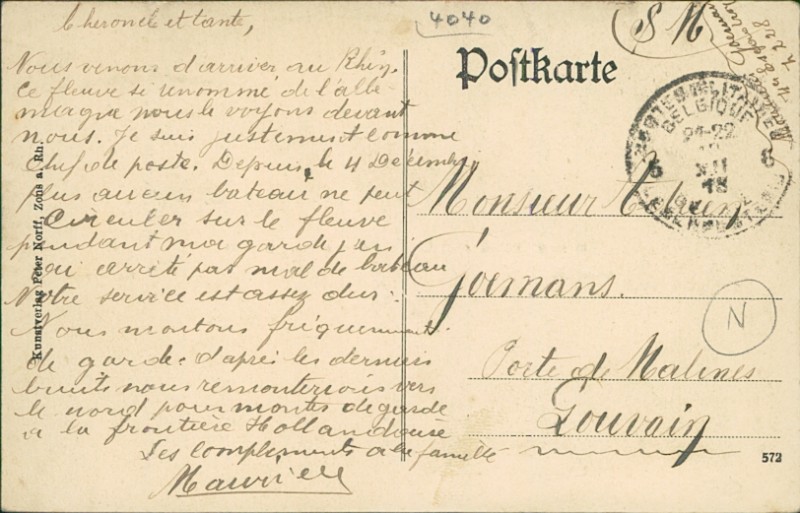 4040
S M
Postkarte
Cher oncle et tante,
Nous venons d'arriver au Rhin,
ce fleuve si renommé de l'alle-
magne nous le voyons devant
nous. Je suis justement comme
Chef de poste. Depuis le 4 Décembre
plus aucun bateau ne peut
circuler sur le fleuve
pendant ma garde j'en
ai arrêté pas mal de bateau
Notre service est assez dur.
Nous montons fréquemment
de garde. d'après les derniers
bruits nous remonterions vers
le nord pour montés de garde
a la frontière Hollandaise
Les compliments a la famille
Maurice
POSTES MILITAIRES
BELGIQUE
21-22
XII
18
6 6
Monsieur
Goemans.
Porte de Malines
Louvain
N
Kunstverlag Peter Norff, Zons a. Rh.
572